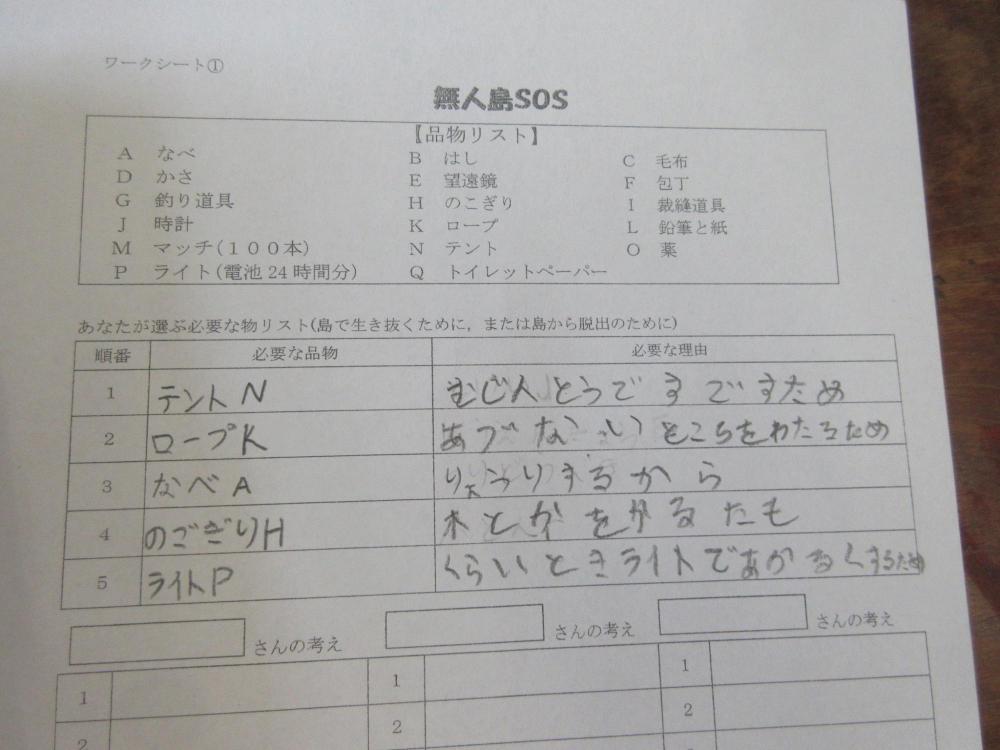 ワークシート①
無人島SOS
【品物リスト】
A なべ B はし C 毛布
D かさ E 望遠鏡 F 包丁
G 釣り道具 H のこぎり I 裁縫道具
J 時計 K ロープ L 鉛筆と紙
M マッチ(100本) N テント O 薬
P ライト(電池24時間分) Q トイレットペーパー
あなたが選ぶ必要な物リスト(島で生き抜くために，または島から脱出のために)
順番 必要な品物 必要な理由
1 テントN むじ人とうですですため
2 ロープK あづないところをわたるため
3 なべA するから
4 のごぎりH 木とかをかるたも
5 ライトP くらいときライトであかるくするため
さんの考え さんの考え さんの考え
1 1 1
2 2 2